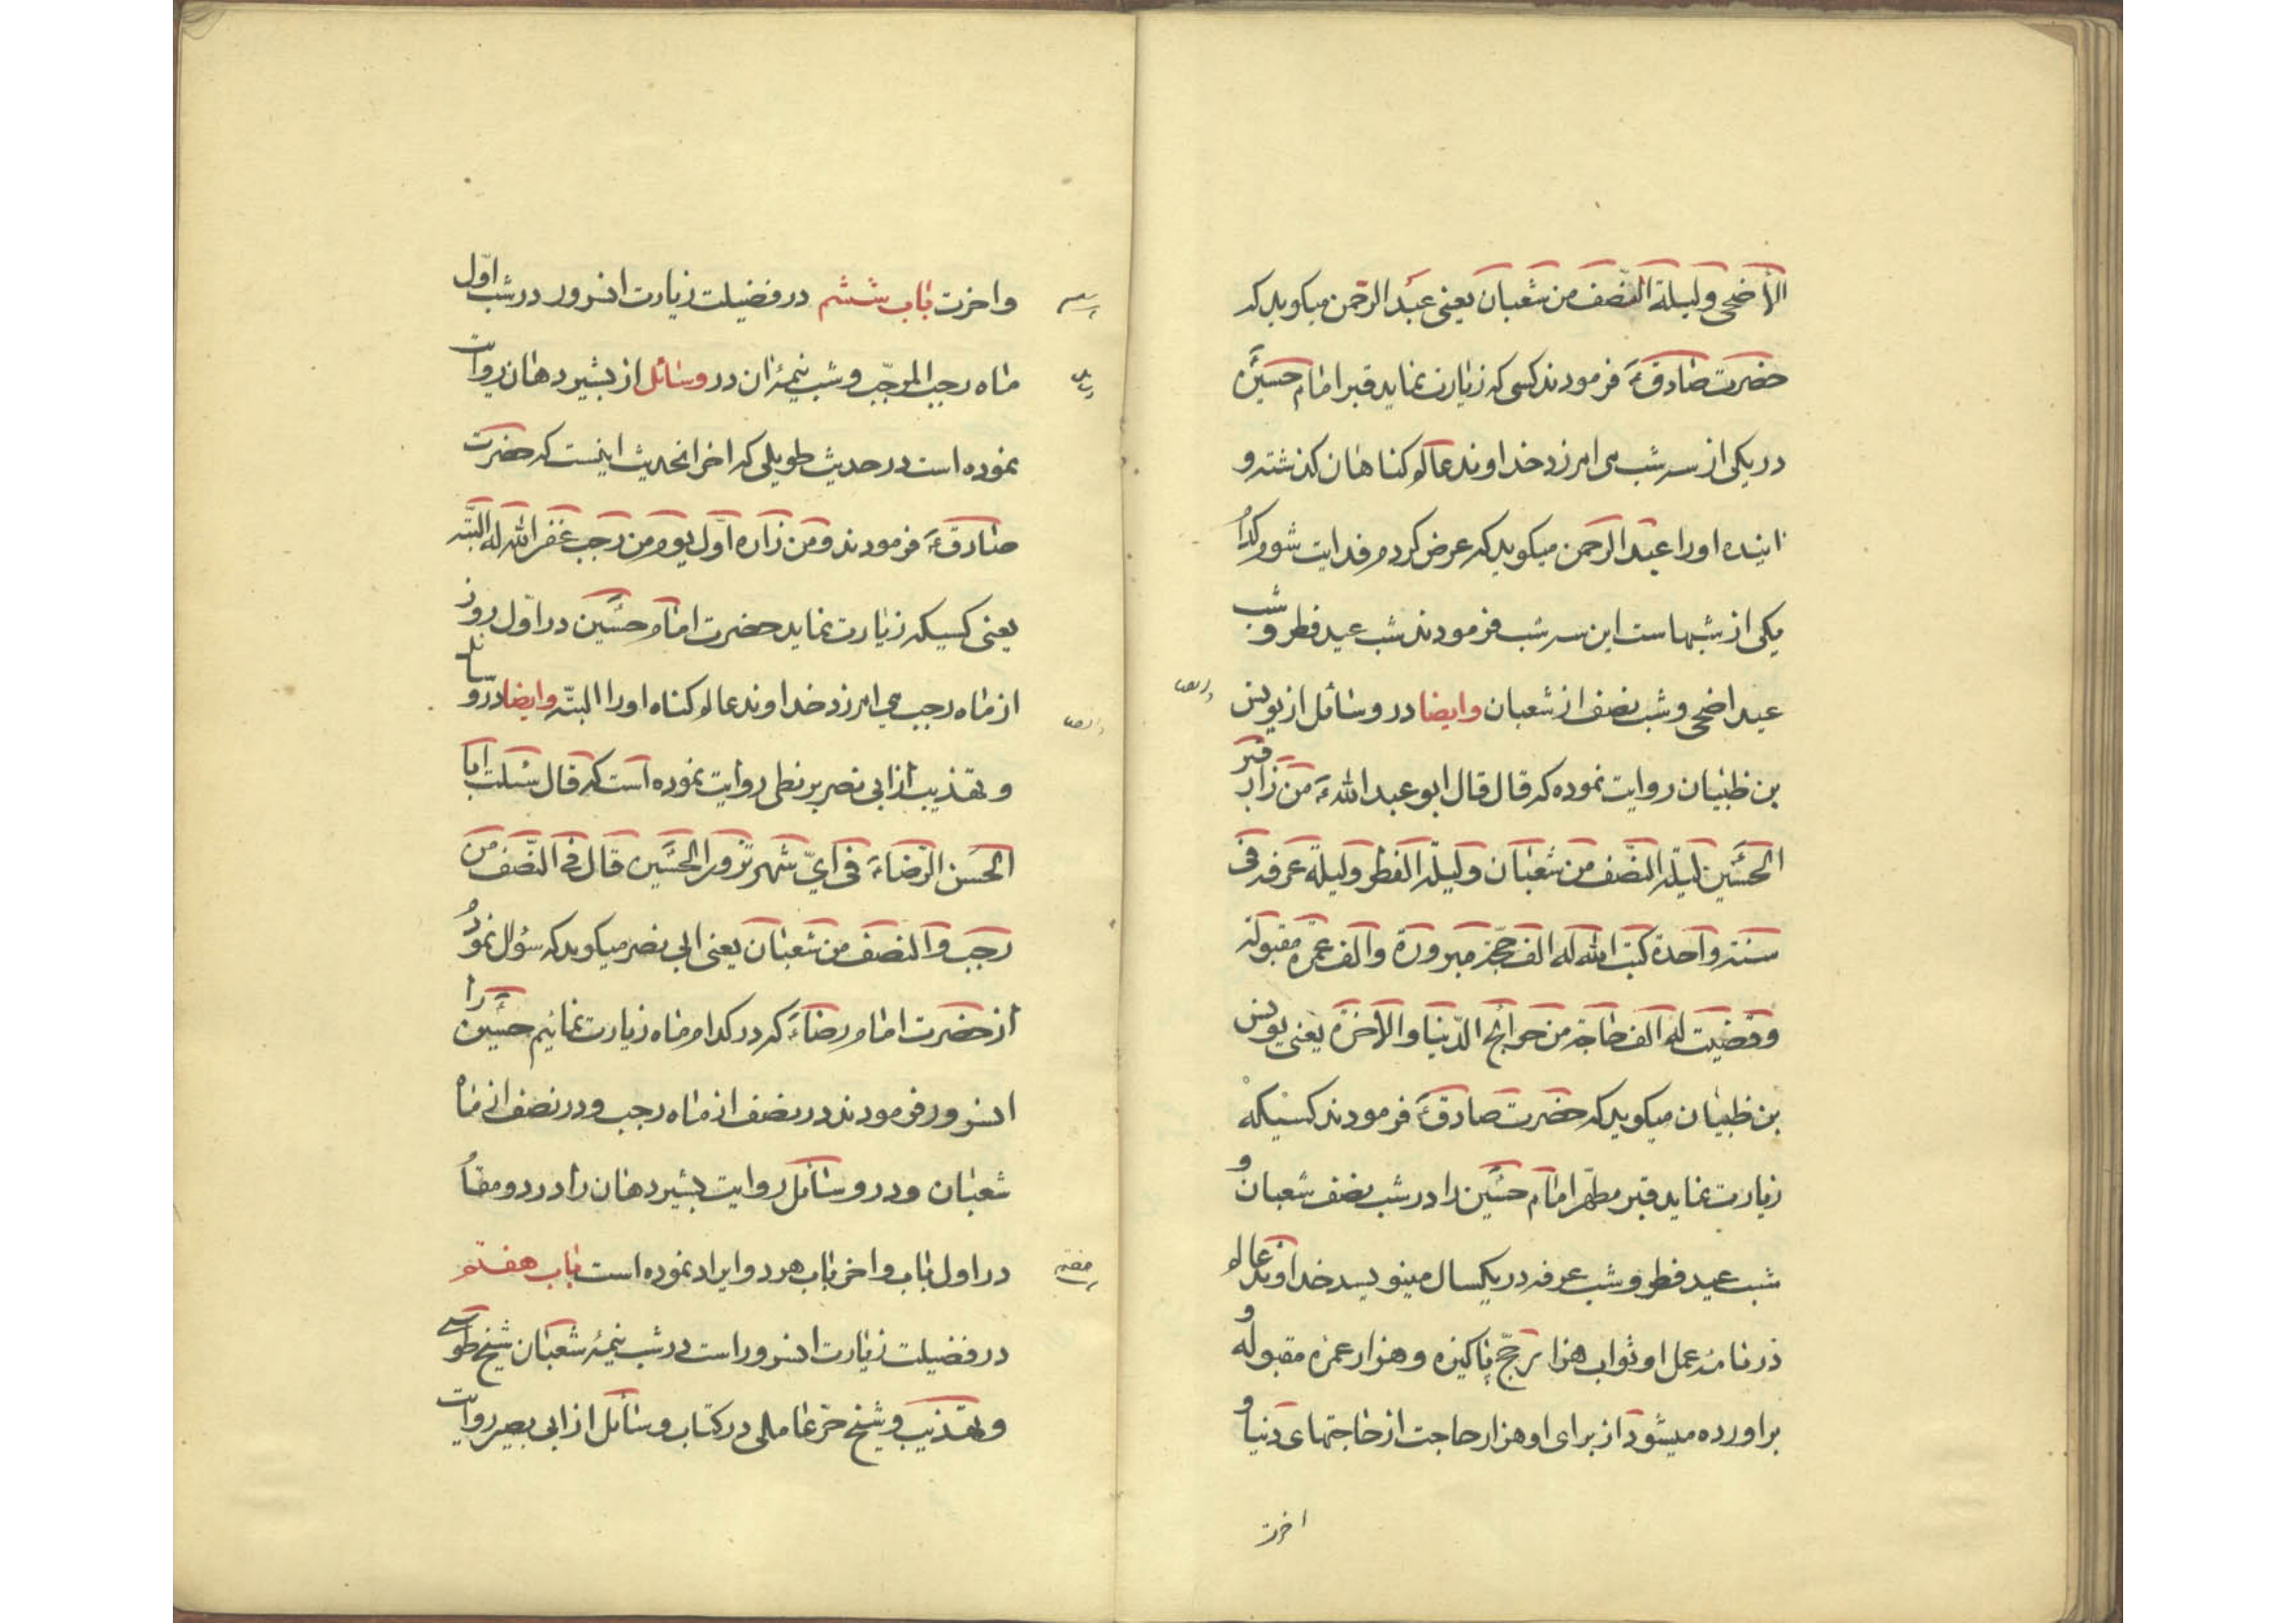 الأضحی ولیلة النصف من شعبان یعنی عبد الرحمن میکوید که
حضرت صادق ع فرمودند کسی که زیارت نماید قبر امام حسین ع
در یکی از سه شب می امرزد خداوند عالم کناهان کذشته و
اینده او را عبد الرحمن میکوید که عرض کردم فدایت شوم کدام
یکی از شبهاست این سه شب فرمودند شب عید فطر و شب
عید اضحی و شب نصف از شعبان وایضا در وسائل از یونس
بن ظبیان روایت نموده که قال قال ابو عبد الله ع من زار قبر
الحسین لیلة النصف من شعبان ولیلة الفطر ولیلة عرفه فی
سنة واحدة کتب الله له الف حجّة مبرورة والف عمرة مقبولة
وقضیت له الف حاجة من حوائج الدّنیا والاخرة یعنی یونس
بن ظبیان میکوید که حضرت صادق ع فرمودند کسیکه
زیارت نماید قبر مطهّر امام حسین را در شب نصف شعبان و
شب عید فطر و شب عرفه در یکسال مینویسد خداوند عالم
در نامهٔ عمل او ثواب هزار حجّ پاکیزه و هزار عمره مقبوله و
براورده میشود از برای او هزار حاجت از حاجتهای دنیا و
اخرت
واخرت باب ششم در فضیلت زیارت انسرور در شب اوّل
ماه رجب المرجّب و شب نیمهٔ ان در وسائل از بشیر دهان روایت
نموده است در حدیث طویلی که اخر انحدیث اینست که حضرت
صادق ع فرمودند ومن زاره اوّل یوم من رجب غفر الله له البتّه
یعنی کسیکه زیارت نماید حضرت امام حسین در اوّل روز
از ماه رجب می امرزد خداوند عالم کناه او را البتّه وایضا در وسائل
و تهذیب از ابی نصر بزنطی روایت نموده است که قال سئلت ابا
الحسن الرّضا ع فی ایّ شهر نزور الحسین قال فی النّصف من
رجب والنصف من شعبان یعنی ابی نصر میکوید که سؤال نمودم
از حضرت امام رضا ع که در کدام ماه زیارت نمائیم حسین را
انسرور فرمودند در نصف از ماه رجب و در نصف از ماه
شعبان و در وسائل روایت بشیر دهان را در دو مقام
در اول باب و اخر باب هر دو ایراد نموده است باب هفتم
در فضیلت زیارت انسرور است در شب نیمهٔ شعبان شیخ طوسی
و تهذیب و شیخ حرّ عاملی در کتاب وسائل از ابی بصیر روایت